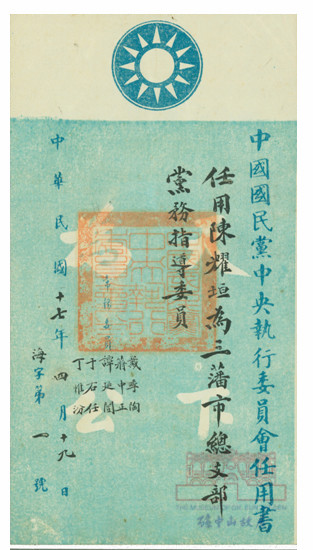 中國國民黨中央執行委員會任用書
任用陳耀垣為三藩市總支部
黨務指導委員
常務委員
戴季陶
蔣中正
譚延闓
于右任
丁惟汾
中華民國十七年四月十九日
海字第一號
下
公